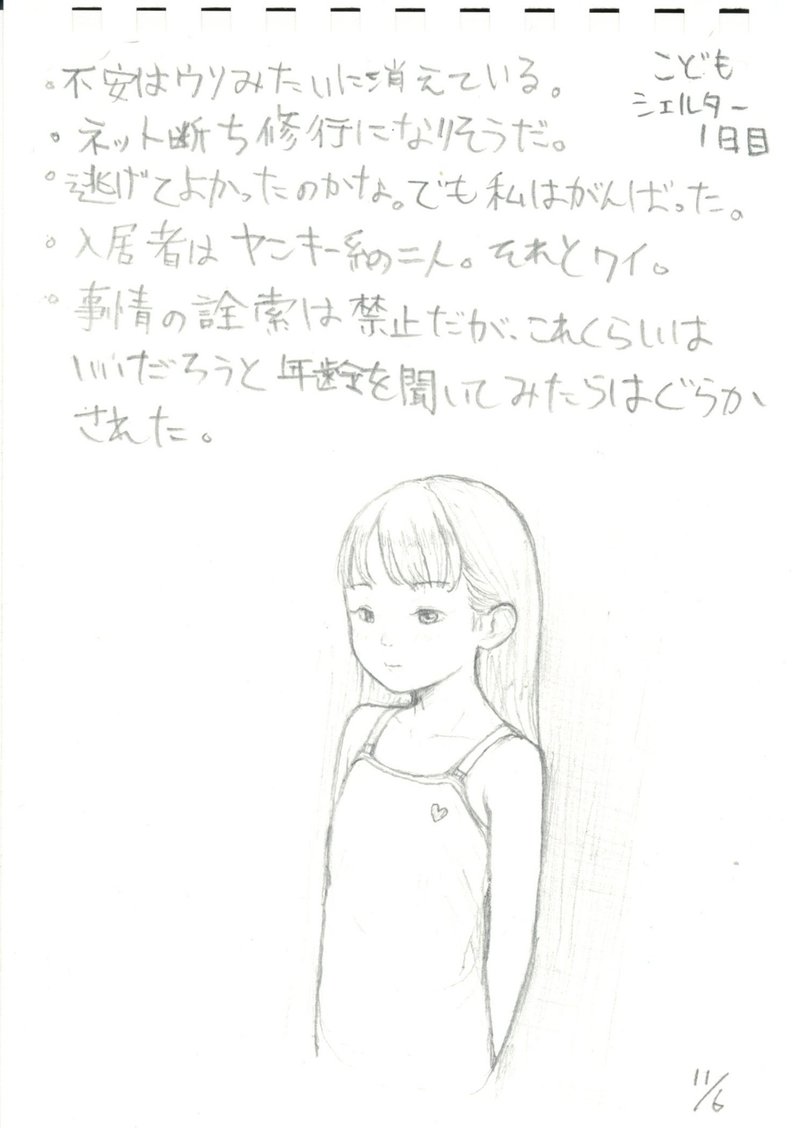 こども
シェルター
1日目
。不安はウソみたいに消えている。
。ネット断ち修行になりそうだ。
。逃げてよかったのかなょ。でも私はがんばった。
。入居者はヤンキー系の二人。それとワイ。
。事情の詮索は禁止だが、これくらいは
いいだろうと年齢を聞いてみたらはぐらか
された。
11/6